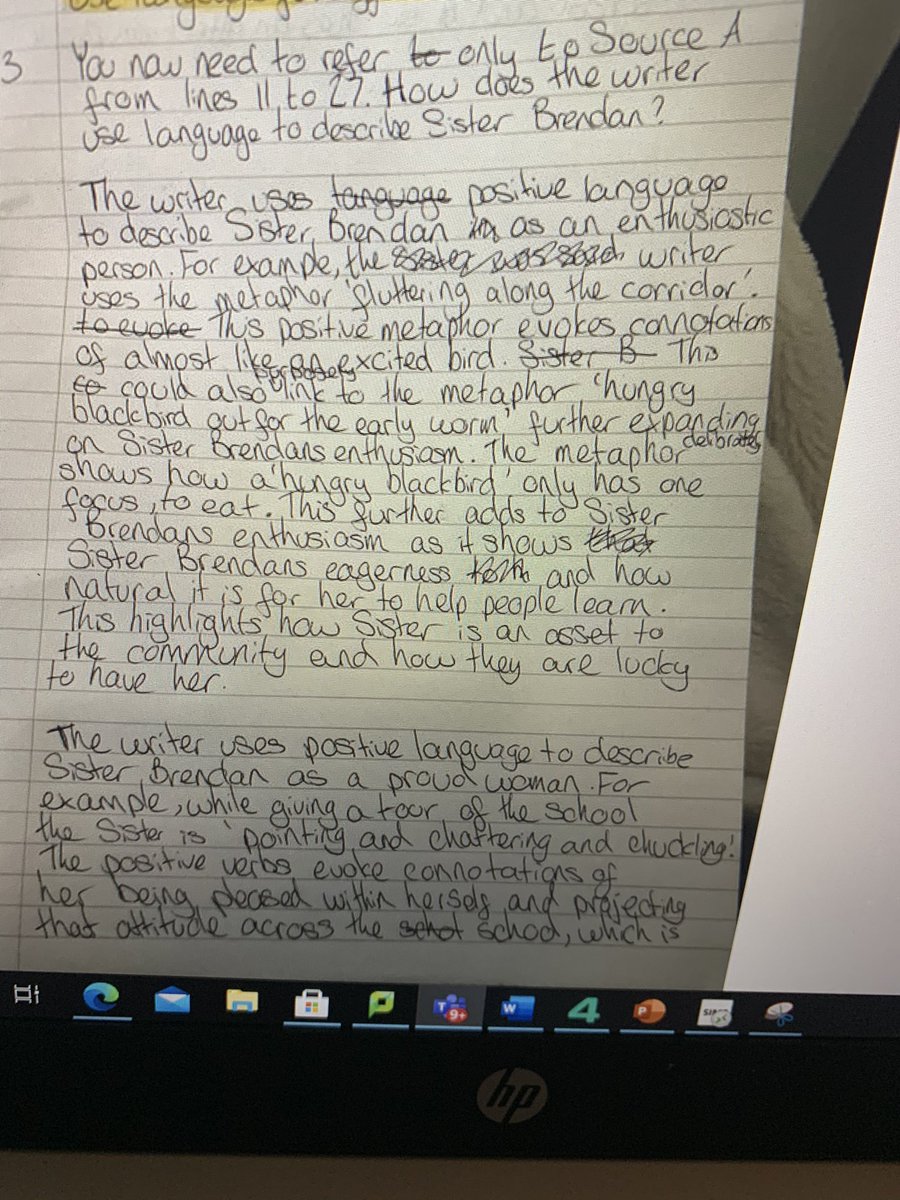 3 You now need to refer to only to Source A
from lines 11 to 27. How does the writer
use language to describe Sister Brendan?
The writer uses language positive language
to describe Sister Brendan as an enthusiastic
person. For example, the writer
uses the metaphor 'fluttering along the corridor'.
to evoke This positive metaphor evokes connotations
of almost like an excited bird. Sister B This
could also purposely link to the metaphor 'hungry
blackbird out for the early worm' further expanding
on Sister Brendans enthusiasm. The metaphor delibrately
shows how a 'hungry blackbird' only has one
focus, to eat. This further adds to Sister
Brendans enthusiasm as it shows that
Sister Brendans eagerness and how
natural it is for her to help people learn.
This highlights how Sister is an asset to
the community and how they are lucky
to have her.
The writer uses positive language to describe
Sister Brendan as a proud woman. For
example, while giving a tour of the school
the Sister is 'pointing and chattering and chuckling'.
The positive verbs evoke connotations of
her being pleased within herself and projecting
that attitude across the school, which is
T 9+
W
4
P
SIP
hp